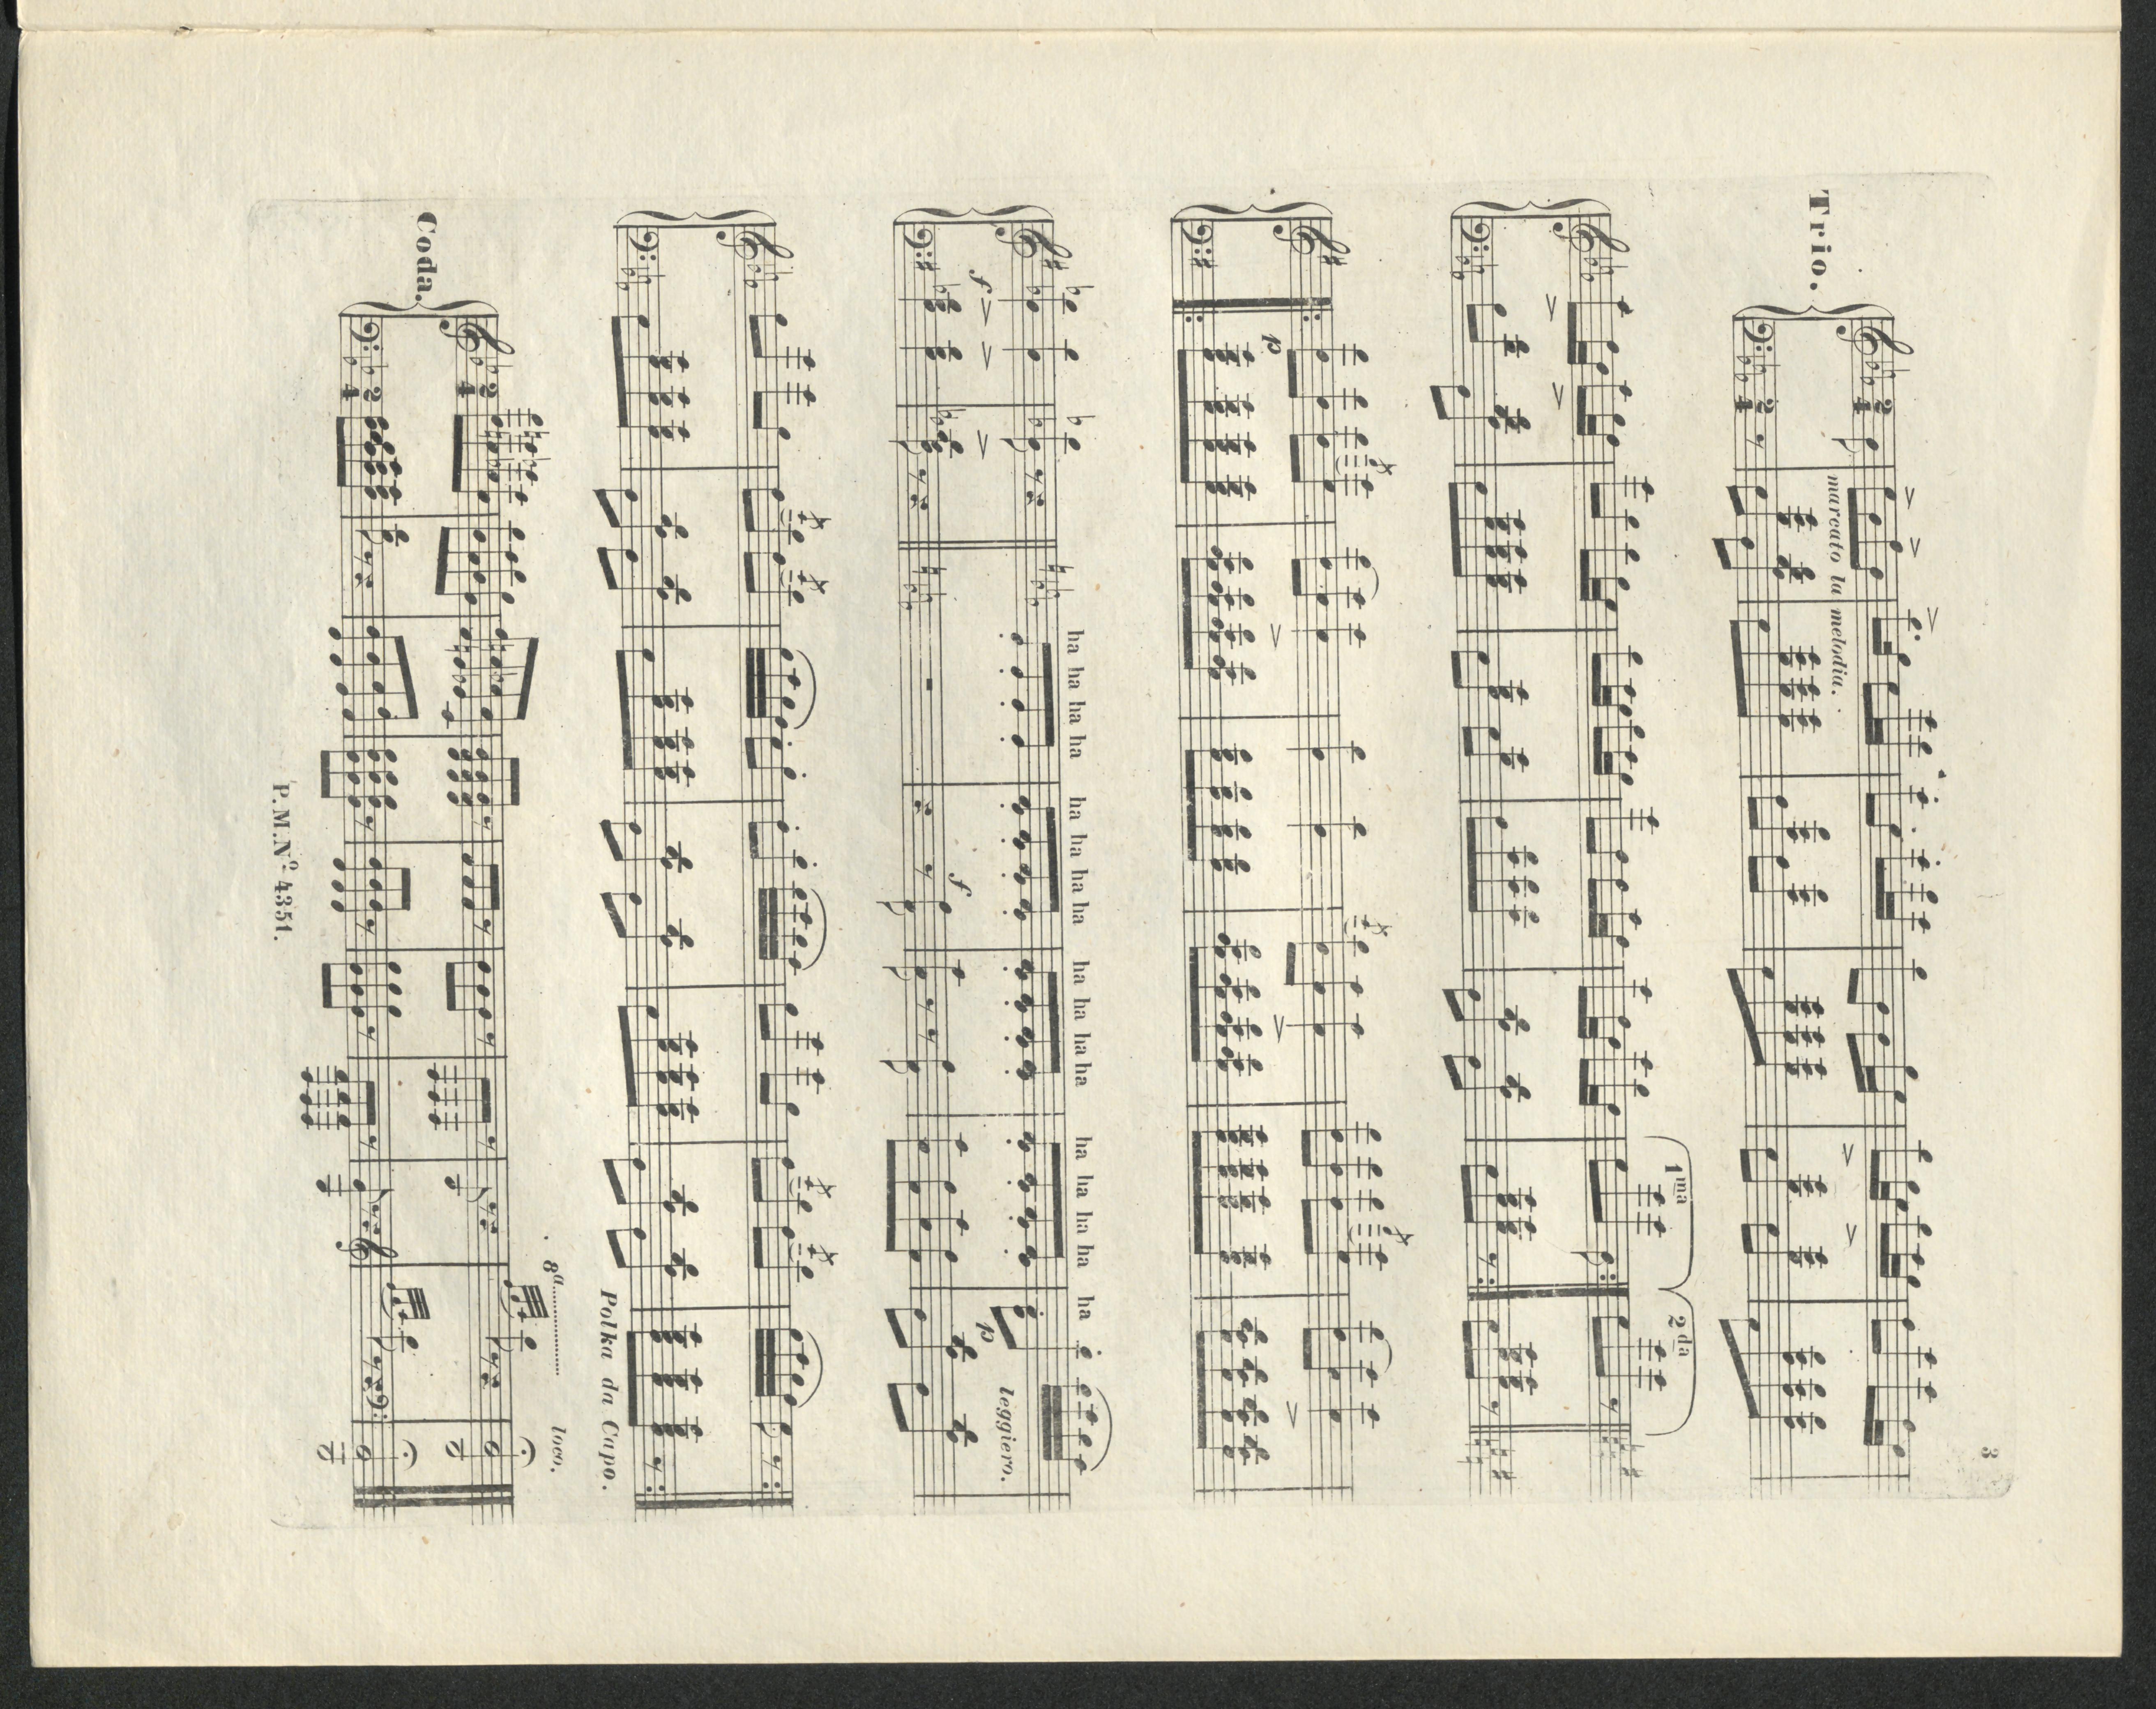 3
Trio.
marcato la melodia.
1ma 2da
p
f
ha ha ha ha ha ha ha ha ha ha ha ha ha ha ha ha ha
f p leggiero.
Polka da Capo.
8a......... loco.
Coda.
P.M.No. 4351.